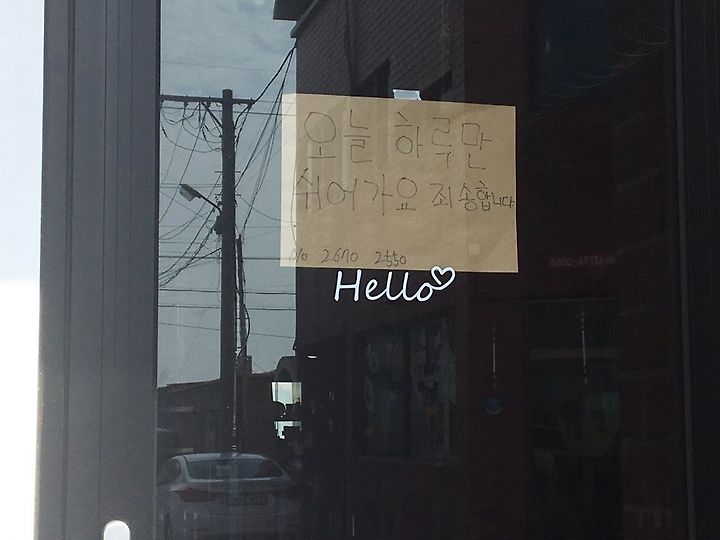 오늘 하루만
쉬어가요 죄송합니다
010 2670 2550
Hello